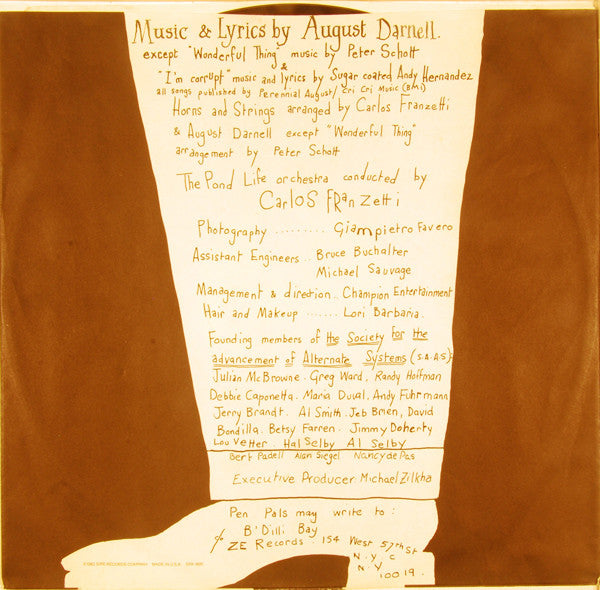 Music & Lyrics by August Darnell.
except "Wonderful Thing" music by Peter Schott
&
"I'm corrupt" music and lyrics by Sugar coated Andy Hernandez
all songs published by Perennial August/ Cri Cri Music (BMI)
Horns and Strings arranged by Carlos Franzetti
& August Darnell except "Wonderful Thing"
arrangement by Peter Schott
The Pond Life orchestra conducted by
Carlos Franzetti
Photography ......... Giampietro Favero
Assistant Engineers.. Bruce Buchalter
Michael Sauvage
Management & direction.. Champion Entertainment
Hair and Makeup ....... Lori Barbaria.
Founding members of the Society for the
advancement of Alternate Systems (S.A.A.S):
Julian McBrowne. Greg Ward. Randy Hoffman
Debbie Caponetta. Maria Duval. Andy Fuhrmann
Jerry Brandt. Al Smith. Jeb Brien, David
Bondilla. Betsy Farren. Jimmy Doherty
Lou Vetter. Hal Selby Al Selby
Bert Padell Alan Siegel Nancy de Pas
Executive Producer Michael Zilkha
Pen Pals may write to:
B'Dilli Bay
c/o ZE Records. 154 West 57th St
N.Y.C
N.Y
10019.
SIRE RECORDS COMPANY MADE IN U.S.A.